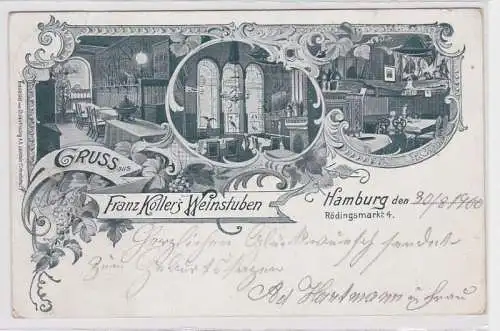 GRUSS aus
Franz Koller's Weinstuben
Hamburg den 30/8 1900
Rödingsmarkt 4.
Herzlichen Glückwunsch sendet
zum Geburtstage
Ad Hartmann u Frau